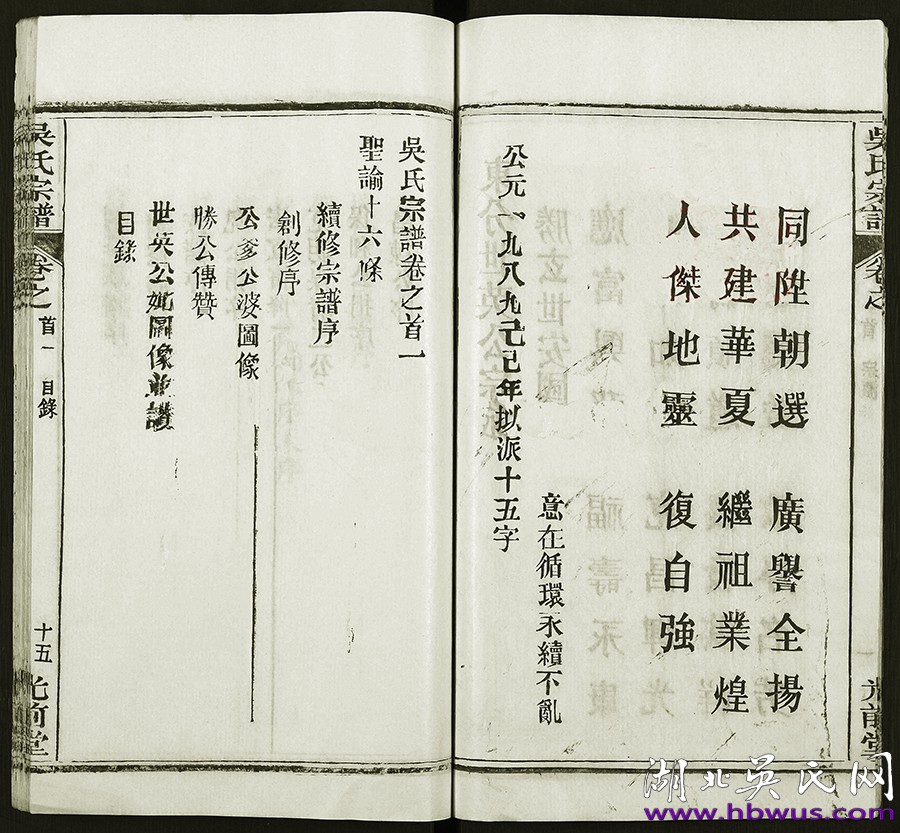 同陞朝選 廣譽全揚
共建華夏 繼祖業煌
人傑地靈 復自強
意在循環永續不亂
公元一九八九己巳年拟派十五字
吳氏宗譜
卷之
首
光前堂
吳氏宗譜卷之首一
聖諭十六條
續修宗譜序
創修序
公爹公婆圖像
勝公傳贊
世英公妣圖像並讚
目錄
吳氏宗譜
卷之
首一
目錄
十五
光前堂
湖北吳氏网
www.hbwus.com